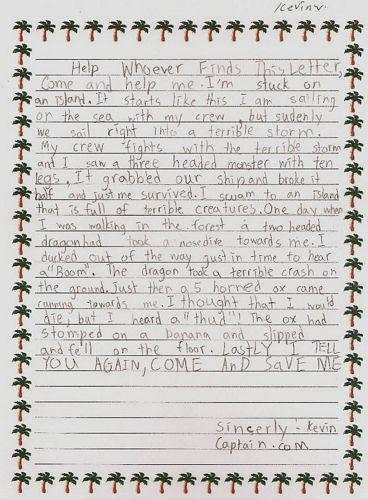 Kevin v.
Help Whoever Finds This Letter,
Come and help me. I'm stuck on
an island. It starts like this I am sailing
on the sea with my crew, but sudenly
we sail right into a terrible storm.
My crew fights with the terrible storm
and I saw a three headed monster with ten
legs. It grabbed our ship and broke it
half and just me survived. I swam to an island
that is full of terrible creatures. One day when
I was walking in the forest a two headed
dragon had took a nosedive towards me. I
ducked out of the way just in time to hear
a "Boom". The dragon took a terrible crash on
the ground. Just then a 5 horned ox came
running towards me. I thought that I would
die, but I heard a "thud"! The ox had
stomped on a banana and slipped
and fell on the floor. LastLY I TELL
YOU AGAIN, COME AnD SaVE ME
Sincerly - Kevin
Captain.com